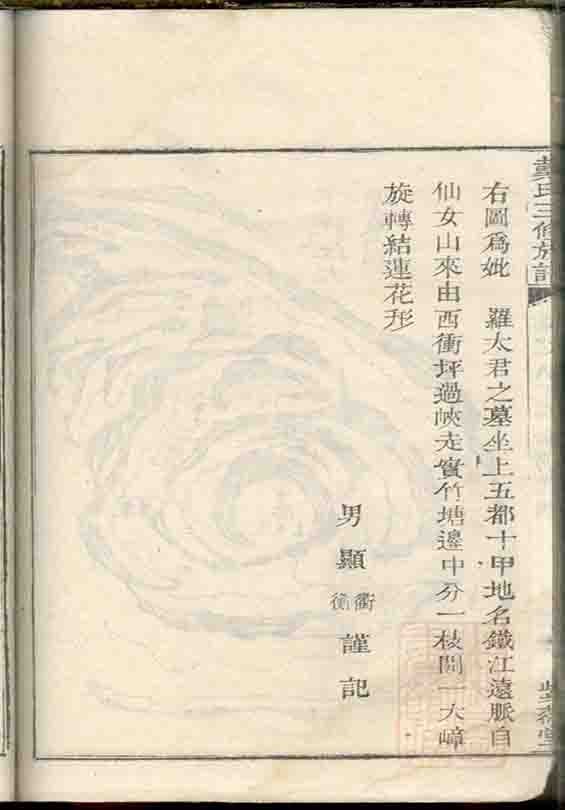 右圖爲妣 羅太君之墓坐上五都十甲地名鐵江遠脈自
仙女山來由西衝坪過峽走實竹塘邊中分一枝開一大嶂
旋轉結蓮花形
男顯衝衡謹記
戴氏三修族譜